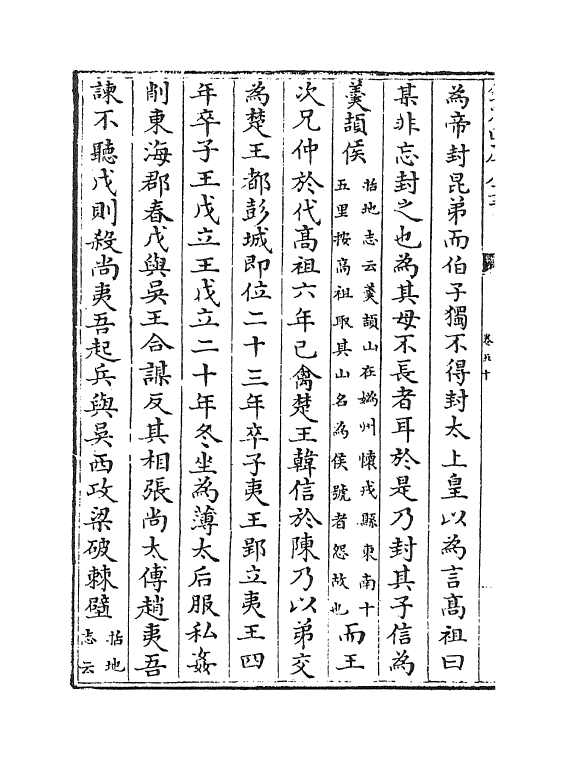 卷五十
為帝封昆弟而伯子獨不得封太上皇以為言高祖曰
某非忘封之也為其母不長者耳於是乃封其子信為
羹頡侯括地志云羹頡山在媯州懷戎縣東南十五里按高祖取其山名為侯號者怨故也而王
次兄仲於代高祖六年已禽楚王韓信於陳乃以弟交
為楚王都彭城即位二十三年卒子夷王郢立夷王四
年卒子王戊立王戊立二十年冬坐為薄太后服私姦
削東海郡春戊與吳王合謀反其相張尚太傅趙夷吾
諫不聽戊則殺尚夷吾起兵與吳西攻梁破棘壁括地志云